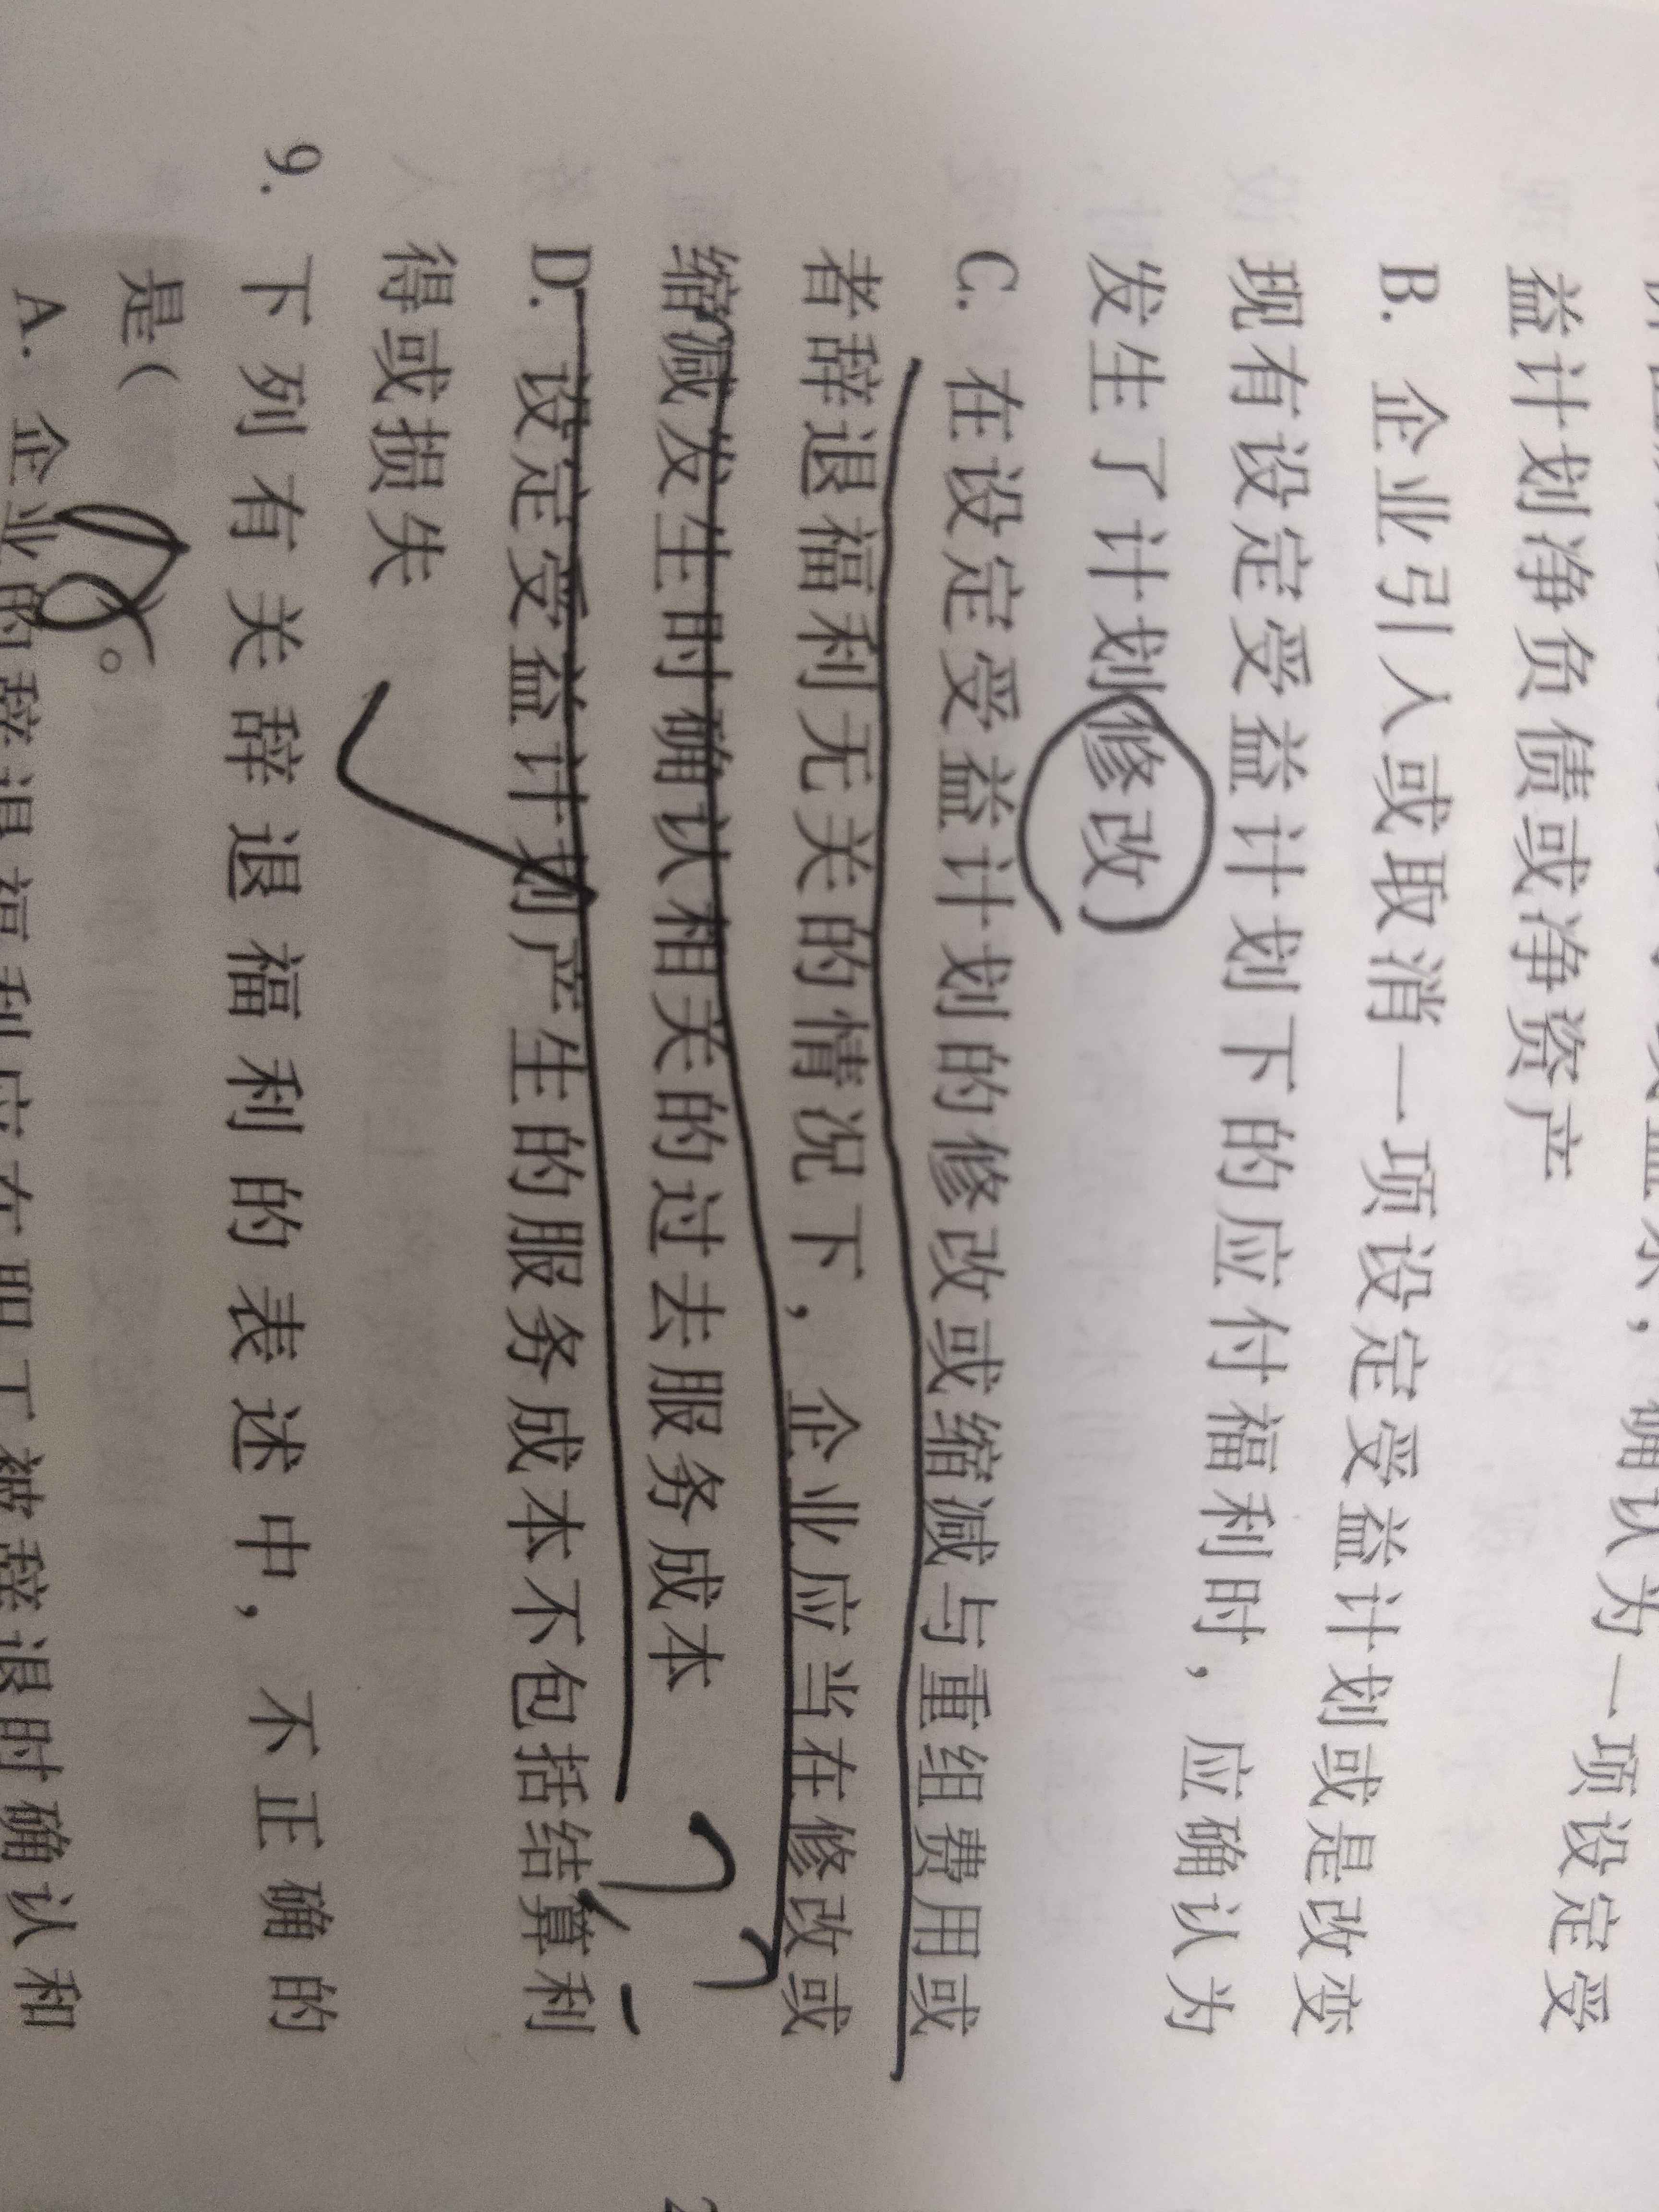 确认为一项设定受
益计划净负债或净资产
B. 企业引入或取消一项设定受益计划或是改变
现有设定受益计划下的应付福利时，应确认为
发生了计划修改
C. 在设定受益计划的修改或缩减与重组费用或
者辞退福利无关的情况下，企业应当在修改或
缩减发生时确认相关的过去服务成本
D. 设定受益计划产生的服务成本不包括结算利
得或损失
9. 下列有关辞退福利的表述中，不正确的
是（ 。
A. 企业的辞退福利应在职工被辞退时确认和
2